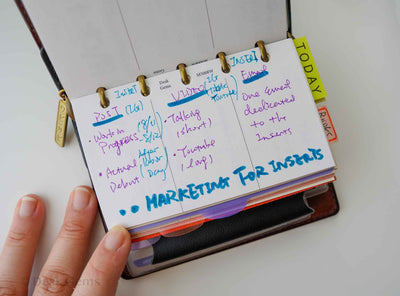 INSERT
POST
(IG)
Work in
Progress
Actual
Debut
After
Labor
Day
INSERT
VIDEO
(IG
Tiktok
Youtube)
Talking
(short)
Youtube
(long)
INSERT
Email
One Email
dedicated
to the
Inserts
.. MARKETING FOR INSERTS
TODAY